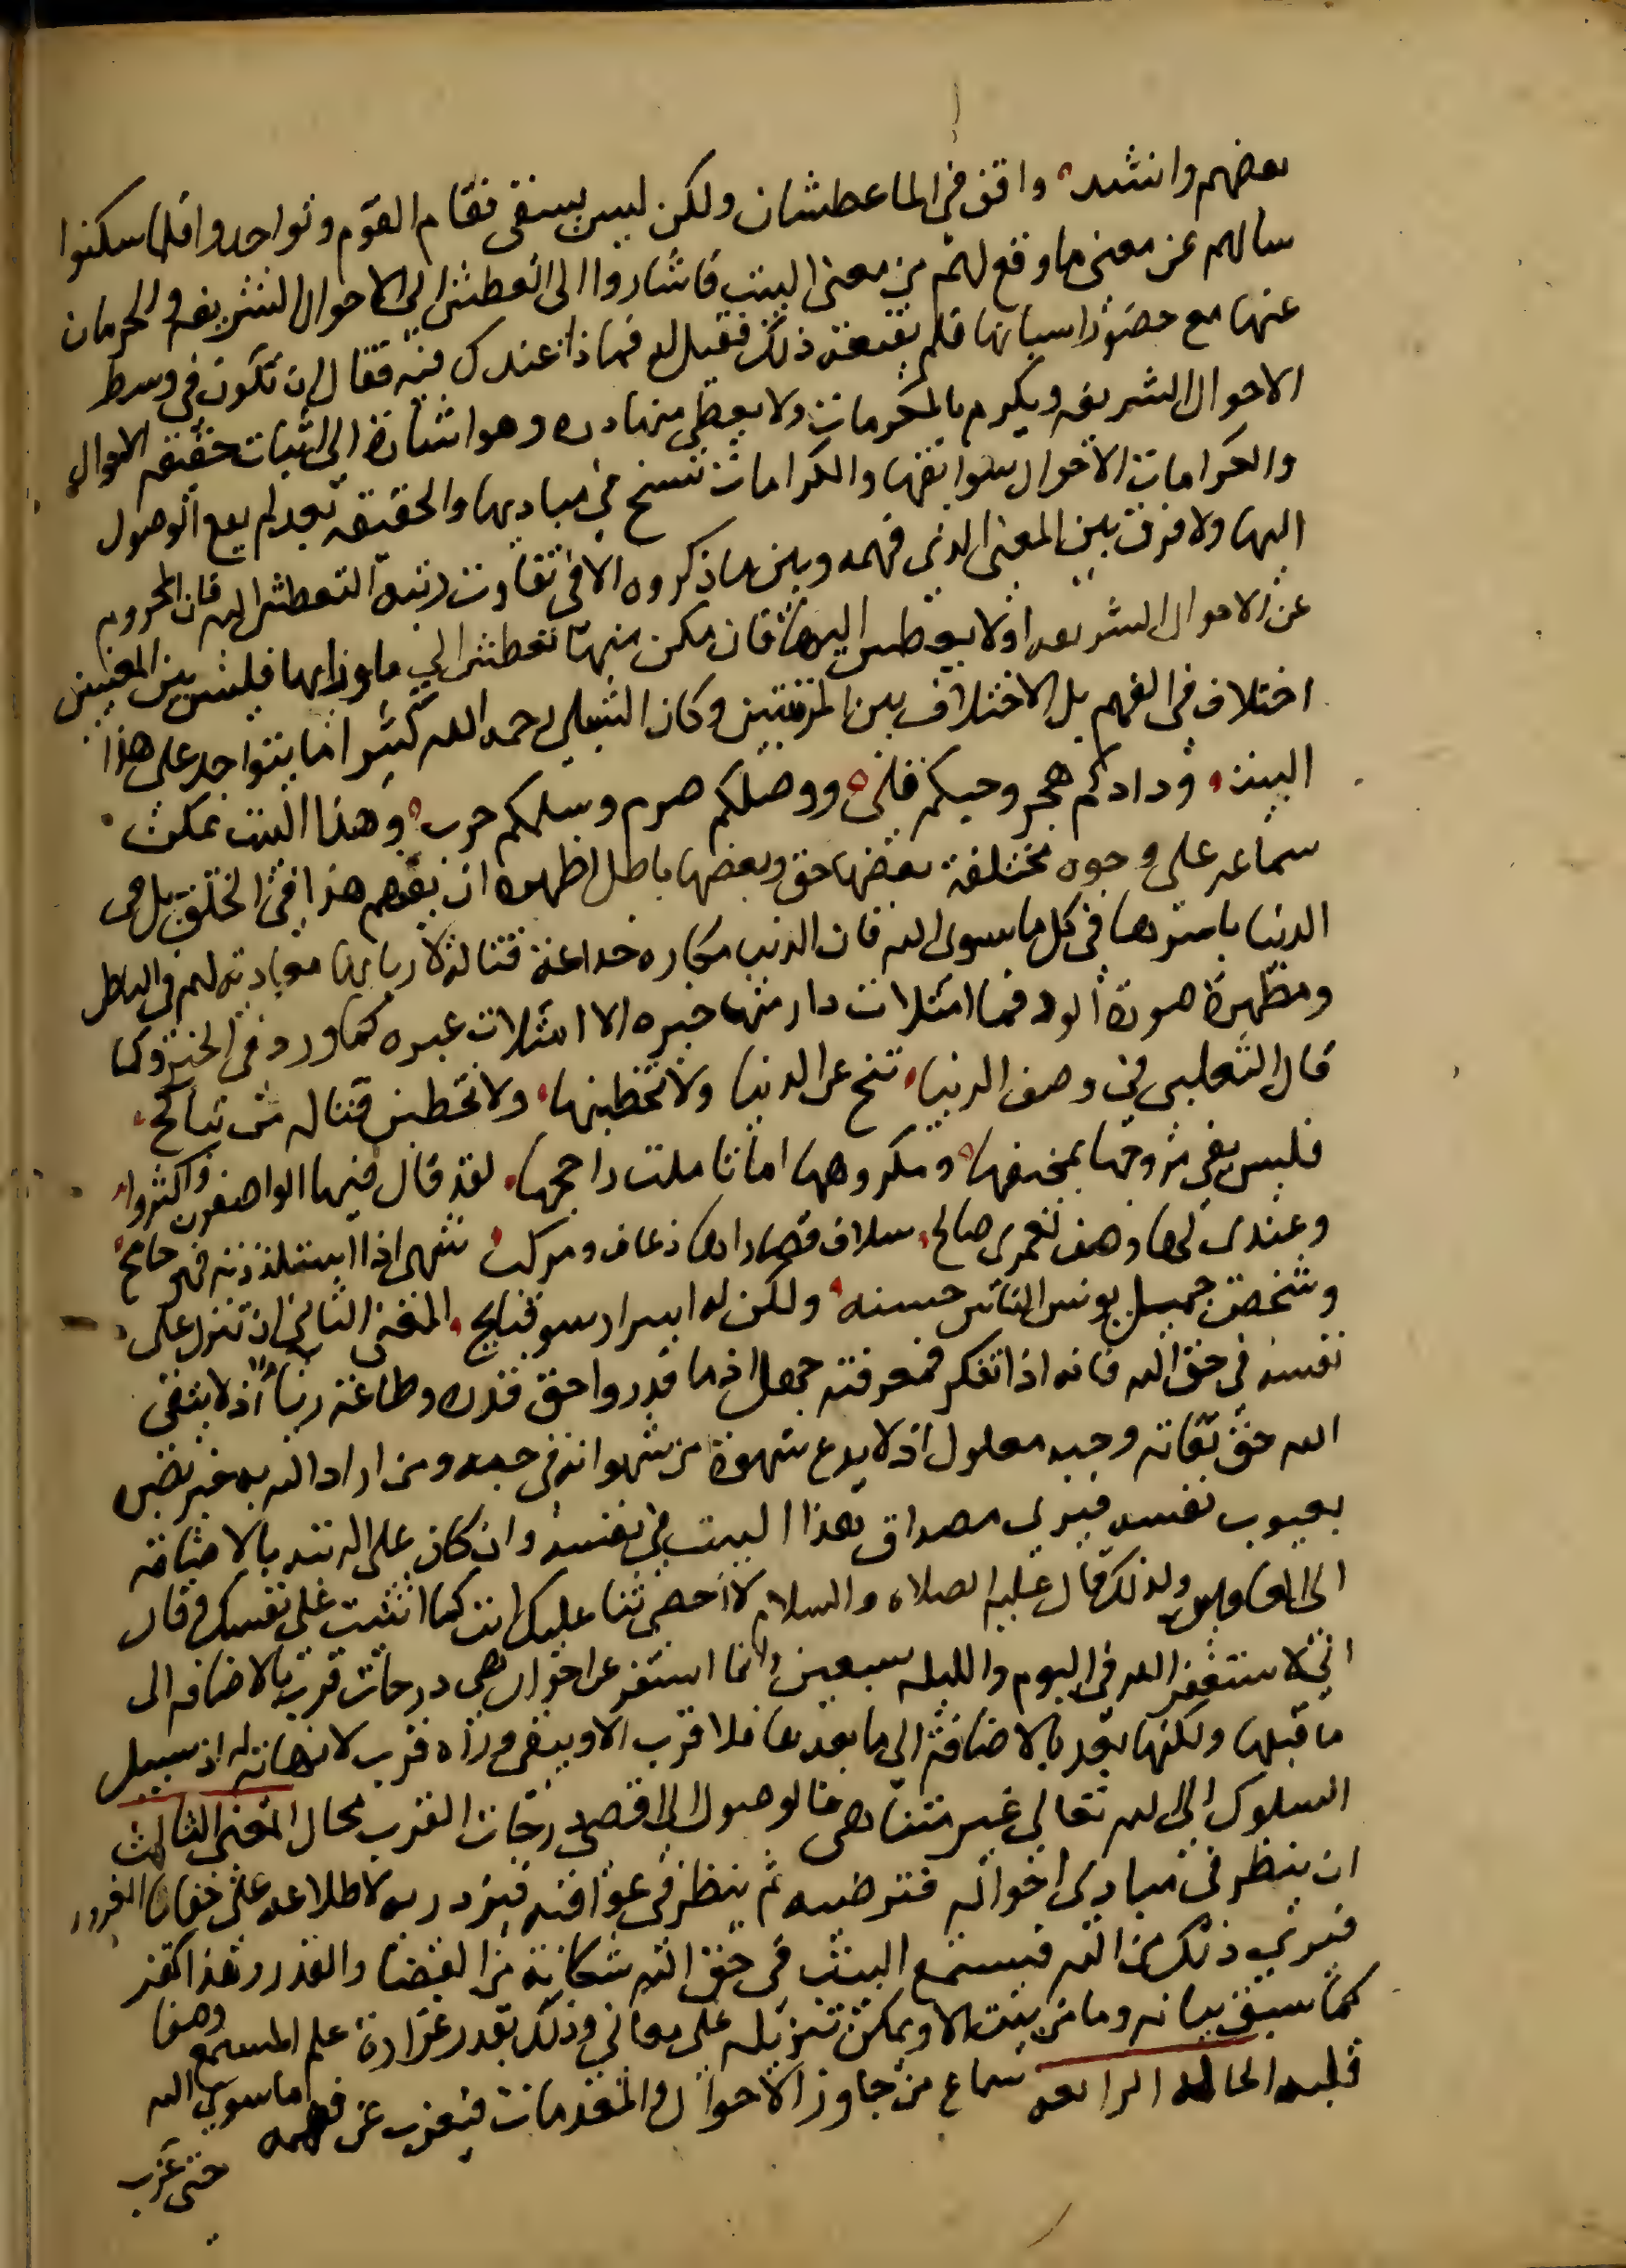 بعضهم وانشد واقف في الما عطشان ولكن ليس يسقى فقام القوم وتواجدوا فلما سكنوا
سالهم عن معنى ما وقع لهم من معنى البيت فاشاروا الى التعطش الى الاحوال الشريفه والحرمان
عنها مع حضور اسبابها فلم يقنعه ذلك فقيل له فماذا عندك فيه فقال ان تكون في وسط
الاحوال الشريفه ويكرم بالمكرمات ولا يعطى منها دره وهو اشارة الى اثبات حقيقه الاحوال
والكرامات الاحوال سوابقها والكرامات تسنح في مباديها والحقيقه بعد لم يقع الوصول
اليها ولا فرق بين المعنى الذي فهمه وبين ما ذكروه الا في تفاوت رتبة التعطش اليه فان المحروم
عن الاحوال الشريفه اولا يتعطش اليها فان مكن منها تعطش الى ما ورايها فليس بين المعنيين
اختلاف في الفهم بل الاختلاف بين المرتبتين وكان الشبلي رحمه الله كثيرا ما يتواجد على هذا
البيت ودادكم هجر وحبكم قلى ووصلكم صرم وسلمكم حرب وهذا البيت يمكن
سماعه على وجوه مختلفة بعضها حق وبعضها باطل اظهره ان يفهم هذا في الخلق بل في
الدنيا باسرها في كل ما سوى الله فان الدنيا مكاره خداعة قتالة لاربابها معادية لهم في الباطل
ومظهرة صورة الود فما امتلات دار منها حبره الا امتلات عبره كما ورد في الخبر وكما
قال الثعلبي في وصف الدنيا تنح عن الدنيا ولا تخطبنها ولا تخطبن قتالة من تناكح
فليس يفي مرجوها بمخوفها ومكروهها اما تاملت راجحها لقد قال فيها الواصفون واكثروا
وعندي لها وصف لعمري صالح سلاف قصاراها زعاف ومركب شهي اذا استلذذته فهو جامح
وشخص جميل يونس الناس حسنه ولكن له اسرار سو قبايح المعنى الثاني ان تنزله على
نفسه في حق الله فانه اذا تفكر فمعرفته جهل اذ ما قدروا حق قدره وطاعته رياء اذ لا يتقي
الله حق تقاته وحبه معلول اذ لا يدع شهوة من شهواته في حبه ومن اراد الله به خير بصره
بعيوب نفسه فيرى مصداق هذا البيت في نفسه وان كان على المرتبه بالاضافه
الى الغافلين ولذلك قال عليه الصلاه والسلام لا احصي ثنا عليك انت كما اثنيت على نفسك وقال
اني لاستغفر الله في اليوم والليله سبعين وانما استغفر عن احوال هي درجات قرب بالاضافه الى
ما قبلها ولكنها بعد بالاضافة الى ما بعدها فلا قرب الا ويبقى وراه قرب لا نهاية له اذ سبيل
السلوك الى الله تعالى غير متناهي فالوصول الى اقصى درجات القرب محال المعنى الثالث
ان ينظر في مبادي احواله فترضيه ثم ينظر في عواقبه فيزدريه لاطلاعه على خفايا الغرور
فيرى ذلك من الله فيستمع البيت في حق الله شكاية من القضا والقدر وهذا كفر
كما سبق بيانه وما من بيت الا ويمكن تنزيله على معاني وذلك بقدر غزارة علم المستمع وصفا
قلبه الحالة الرابعه سماع من جاوز الاحوال والمقدمات فيعزب عن فهمه ما سوى الله
حتى عزب